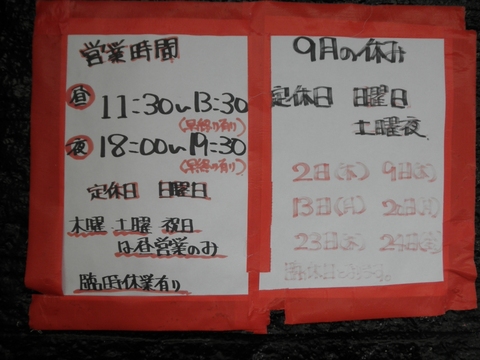 営業時間
昼 11:30〜13:30
(早終り有り)
夜 18:00〜19:30
(早終り有り)
定休日 日曜日
木曜 土曜 祝日
は昼営業のみ
臨時休業有り
9月の休み
定休日 日曜日
土曜夜
2日(木) 9日(木)
13日(月) 20日(月)
23日(木) 24日(金)